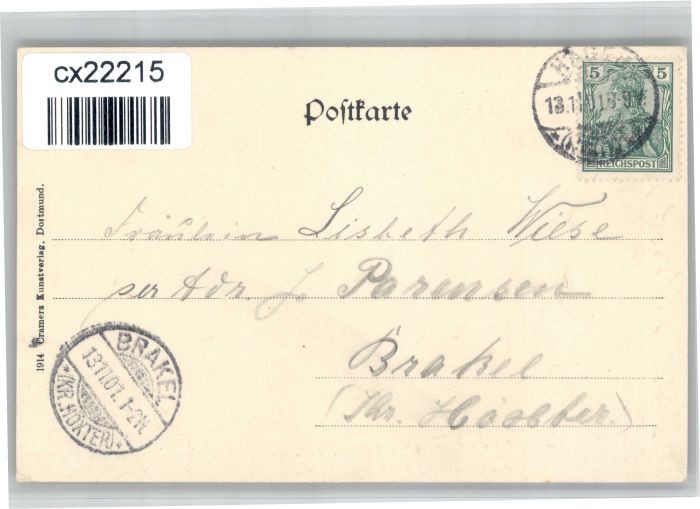 cx22215
Postkarte
5 5
REICHSPOST
13.11.01
Fräulein Lisbeth Wiese
per Adr. J. Parensen
Brakel
(Kr. Höxter.)
1914 Cramers Kunstverlag, Dortmund.
BRAKEL
13.11.01. 1-2N
*(KR. HÖXTER)*